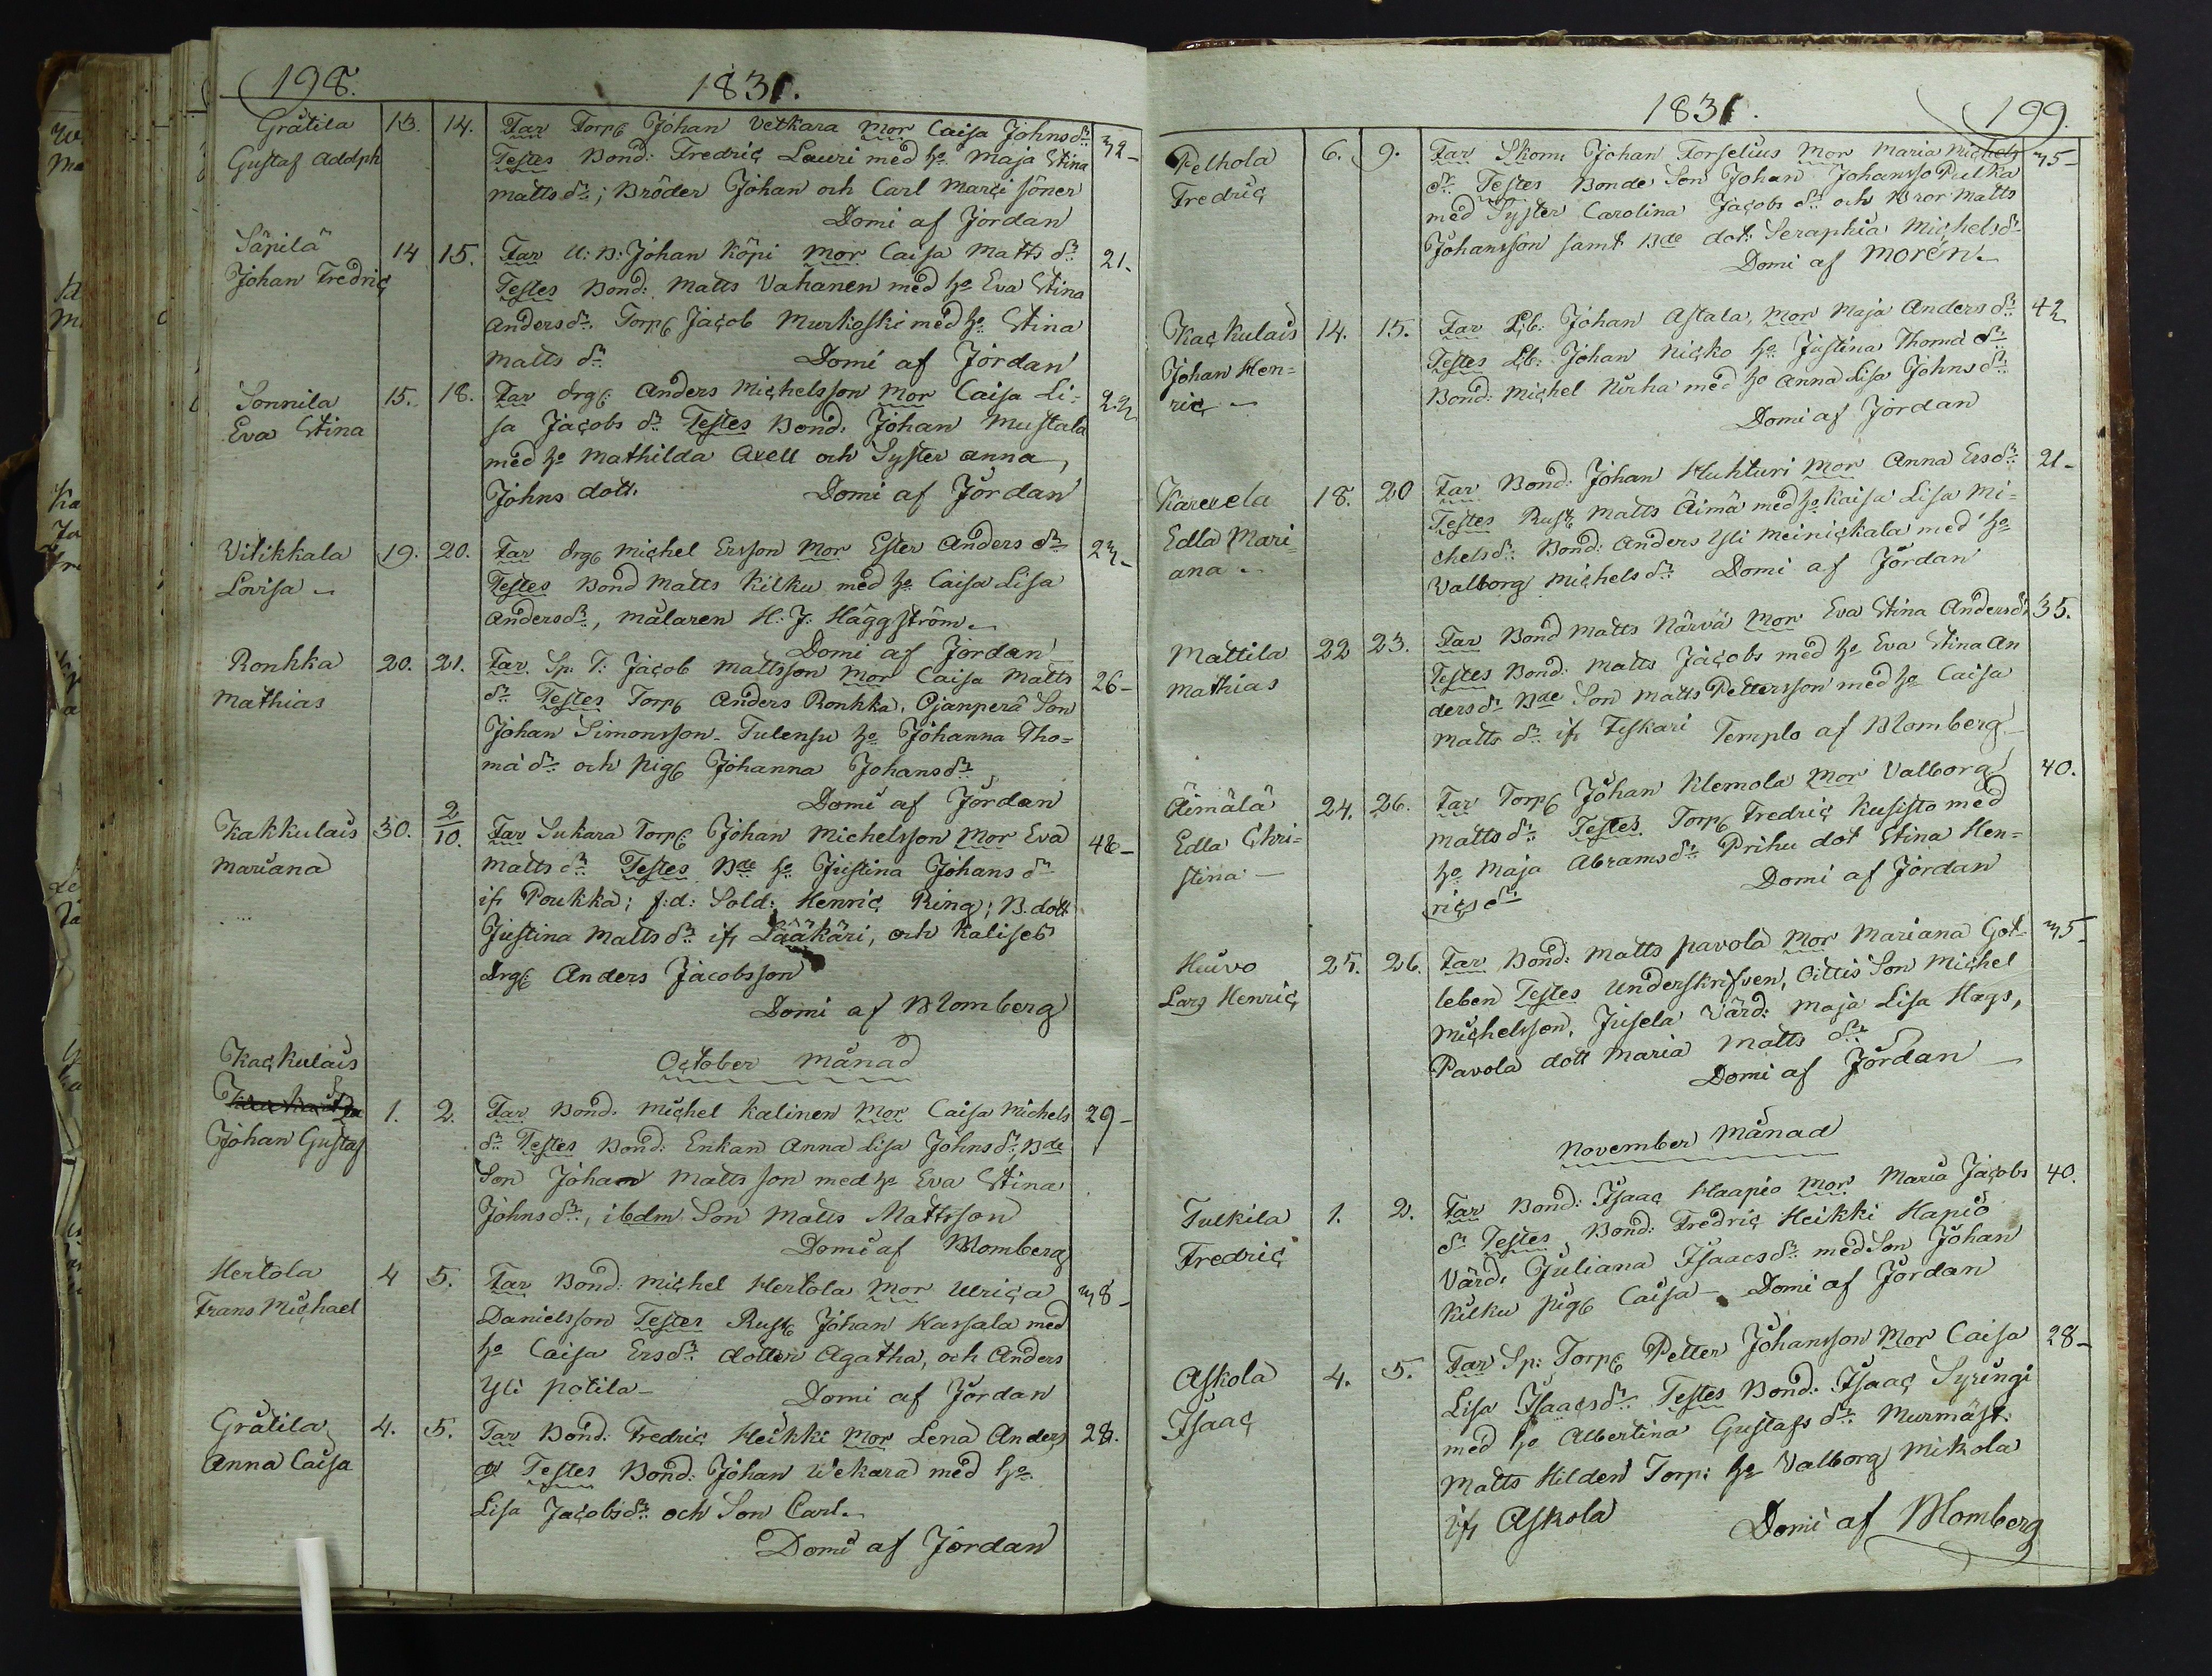 198.
1831.
Grätila 13. 14. Far Torp: Johan Vetkara Mor Caisa Johnsdr 32-
Gustaf Adolph Testes Bond: Fredric Lauri med ho Maja Stina
Mattsdr; Bröder Johan och Carl Marci söner
Domi af Jordan
Säpilä 14 15. Far U: B: Johan Köpi Mor Caisa Matts dr 21.
Johan Fredric Testes Bond: Matts Vahanen med ho Eva Stina
Andersdr. Torp: Jacob Murkoski med ho Stina
Matts dr Domi af Jordan
Sonnila 15. 18. Far drg: Anders Michelsson Mor Caisa Li= 22
Eva Stina sa Jacobs dr Testes Bond: Johan Mustala
med ho Mathilda Axell och Syster Anna
Johns dott. Domi af Jordan
Vitikkala 19. 20. Far drg Michel Ersson Mor Ester Anders dr 23-
Lovisa Testes Bond Matts Kilku med ho Caisa Lisa
Andersdr, målaren H: J: Häggström
Domi af Jordan
Ronkka 20. 21. Far Sp: T: Jacob Mattsson Mor Caisa Matts 26-
Mathias dr Testes Torp Anders Ronkka, Ojanperä Son
Johan Simonsson Tulensu ho Johanna Tho=
mä dr och pig Johanna Johansdr
Domi af Jordan
Kakkulais 30. 2/10. Far Sukara Torp: Johan Michelsson Mor Eva 48-
Mariana Matts dr Testes Bde ho Justina Johans dr
ifr Poukka; f:d: Sold: Henric Ring; B. dott
Justina Matts dr ifr Lääkäri, och Kaliseb
drg Anders Jacobsson
Domi af Blomberg
October Månad
Kackulais
1. 2. Far Bond. Michel Kalinen Mor Caisa Michels 29-
Johan Gustaf dr Testes Bond: Enkan Anna Lisa Johnsdr, Bde
Son Johan Mattsson med ho Eva Stina
Johnsdr, ibdm Son Matts Mattsson
Domi af Blomberg
Hertola 4 5. Far Bond: Michel Hertola Mor Ulrica 38-
Frans Michael Danielsson Testes Rust Johan Kassala med
ho Caisa Ersdr dotter Agatha, och Anders
Yli potila Domi af Jordan
Grätila 4. 5. Far Bond: Fredric Heikki Mor Lena Anders 28.
Anna Caisa dr Testes Bond: Johan Wekara med ho
Lisa Jacobsdr och Son Carl.
Domi af Jordan
1831.
199.
Pelhola 6. 9. Far Skom: Johan Forselius Mor Maria Michels 35-
Fredric dr Testes Bonde Son Johan Johansso Pulka
med Syster Carolina Jacobs dr och Bror Matts
Johansson samt Bde dot: Seraphia Michelsdr
Domi af Morén
Kackulais 14. 15. Far Lb: Johan Astala, Mor Maja Anders dr 42
Johan Hen= Testes Lb: Johan Nicko ho Justina Thomä dr
ric Bond: Michel Kirha med ho Anna Lisa Johnsdr
Domi af Jordan
Karevela 18. 20 Far Bond: Johan Huhturi Mor Anna Ersdr 21-
Edla Mari= Testes Rust Matts Äimä med ho Kaisa Lisa Mi=
ana chelsdr Bond: Anders Yli Meinickala med ho
Valborg Michelsdr Domi af Jordan
Mattila 22 23. Far Bond Matts Närvä Mor Eva Stina Andersdr 35.
Mathias Testes Bond: Matts Jacobs med ho Eva Stina An
dersdr Bde Son Matts Pettersson med ho Caisa
Matts dr ifr Teskari Templo af Blomberg
Äimälä 24. 26. Far Torp Johan Klemola Mor Valborg 40.
Edla Chri= Matts dr Testes Torp Fredric Kusisto med
stina ho Maja Abramsdr Prihu dot Stina Hen=
rics dr Domi af Jordan
Huivo 25. 26. Far Bond: Matts Pavola Mor Mariana Got- 35-
Lars Henric leben Testes Underskrifven, Oittis Son Michel
Michelsson, Jusela Värd: Maja Lisa Hags,
Pavola dott Maria Matts dr
Domi af Jordan
November Månad
Tulkila 1. 2. Far Bond: Isaac Haapio Mor Maria Jacobs 40.
Fredric dr Testes, Bond: Fredric Heikki Hapio
Värd: Juliana Isaacsdr med Son Johan
Kilku pig Caisa Domi af Jordan
Askola 4. 5. Far Sp: Torp Petter Johansson Mor Caisa 28-
Isaac Lisa Isaacsdr Testes Bond: Isaac Syringi
med ho Albertina Gustafs dr Murmäst:
Matts Hilden Torp: ho Valborg Mikola
ifr Askola Domi af Blomberg